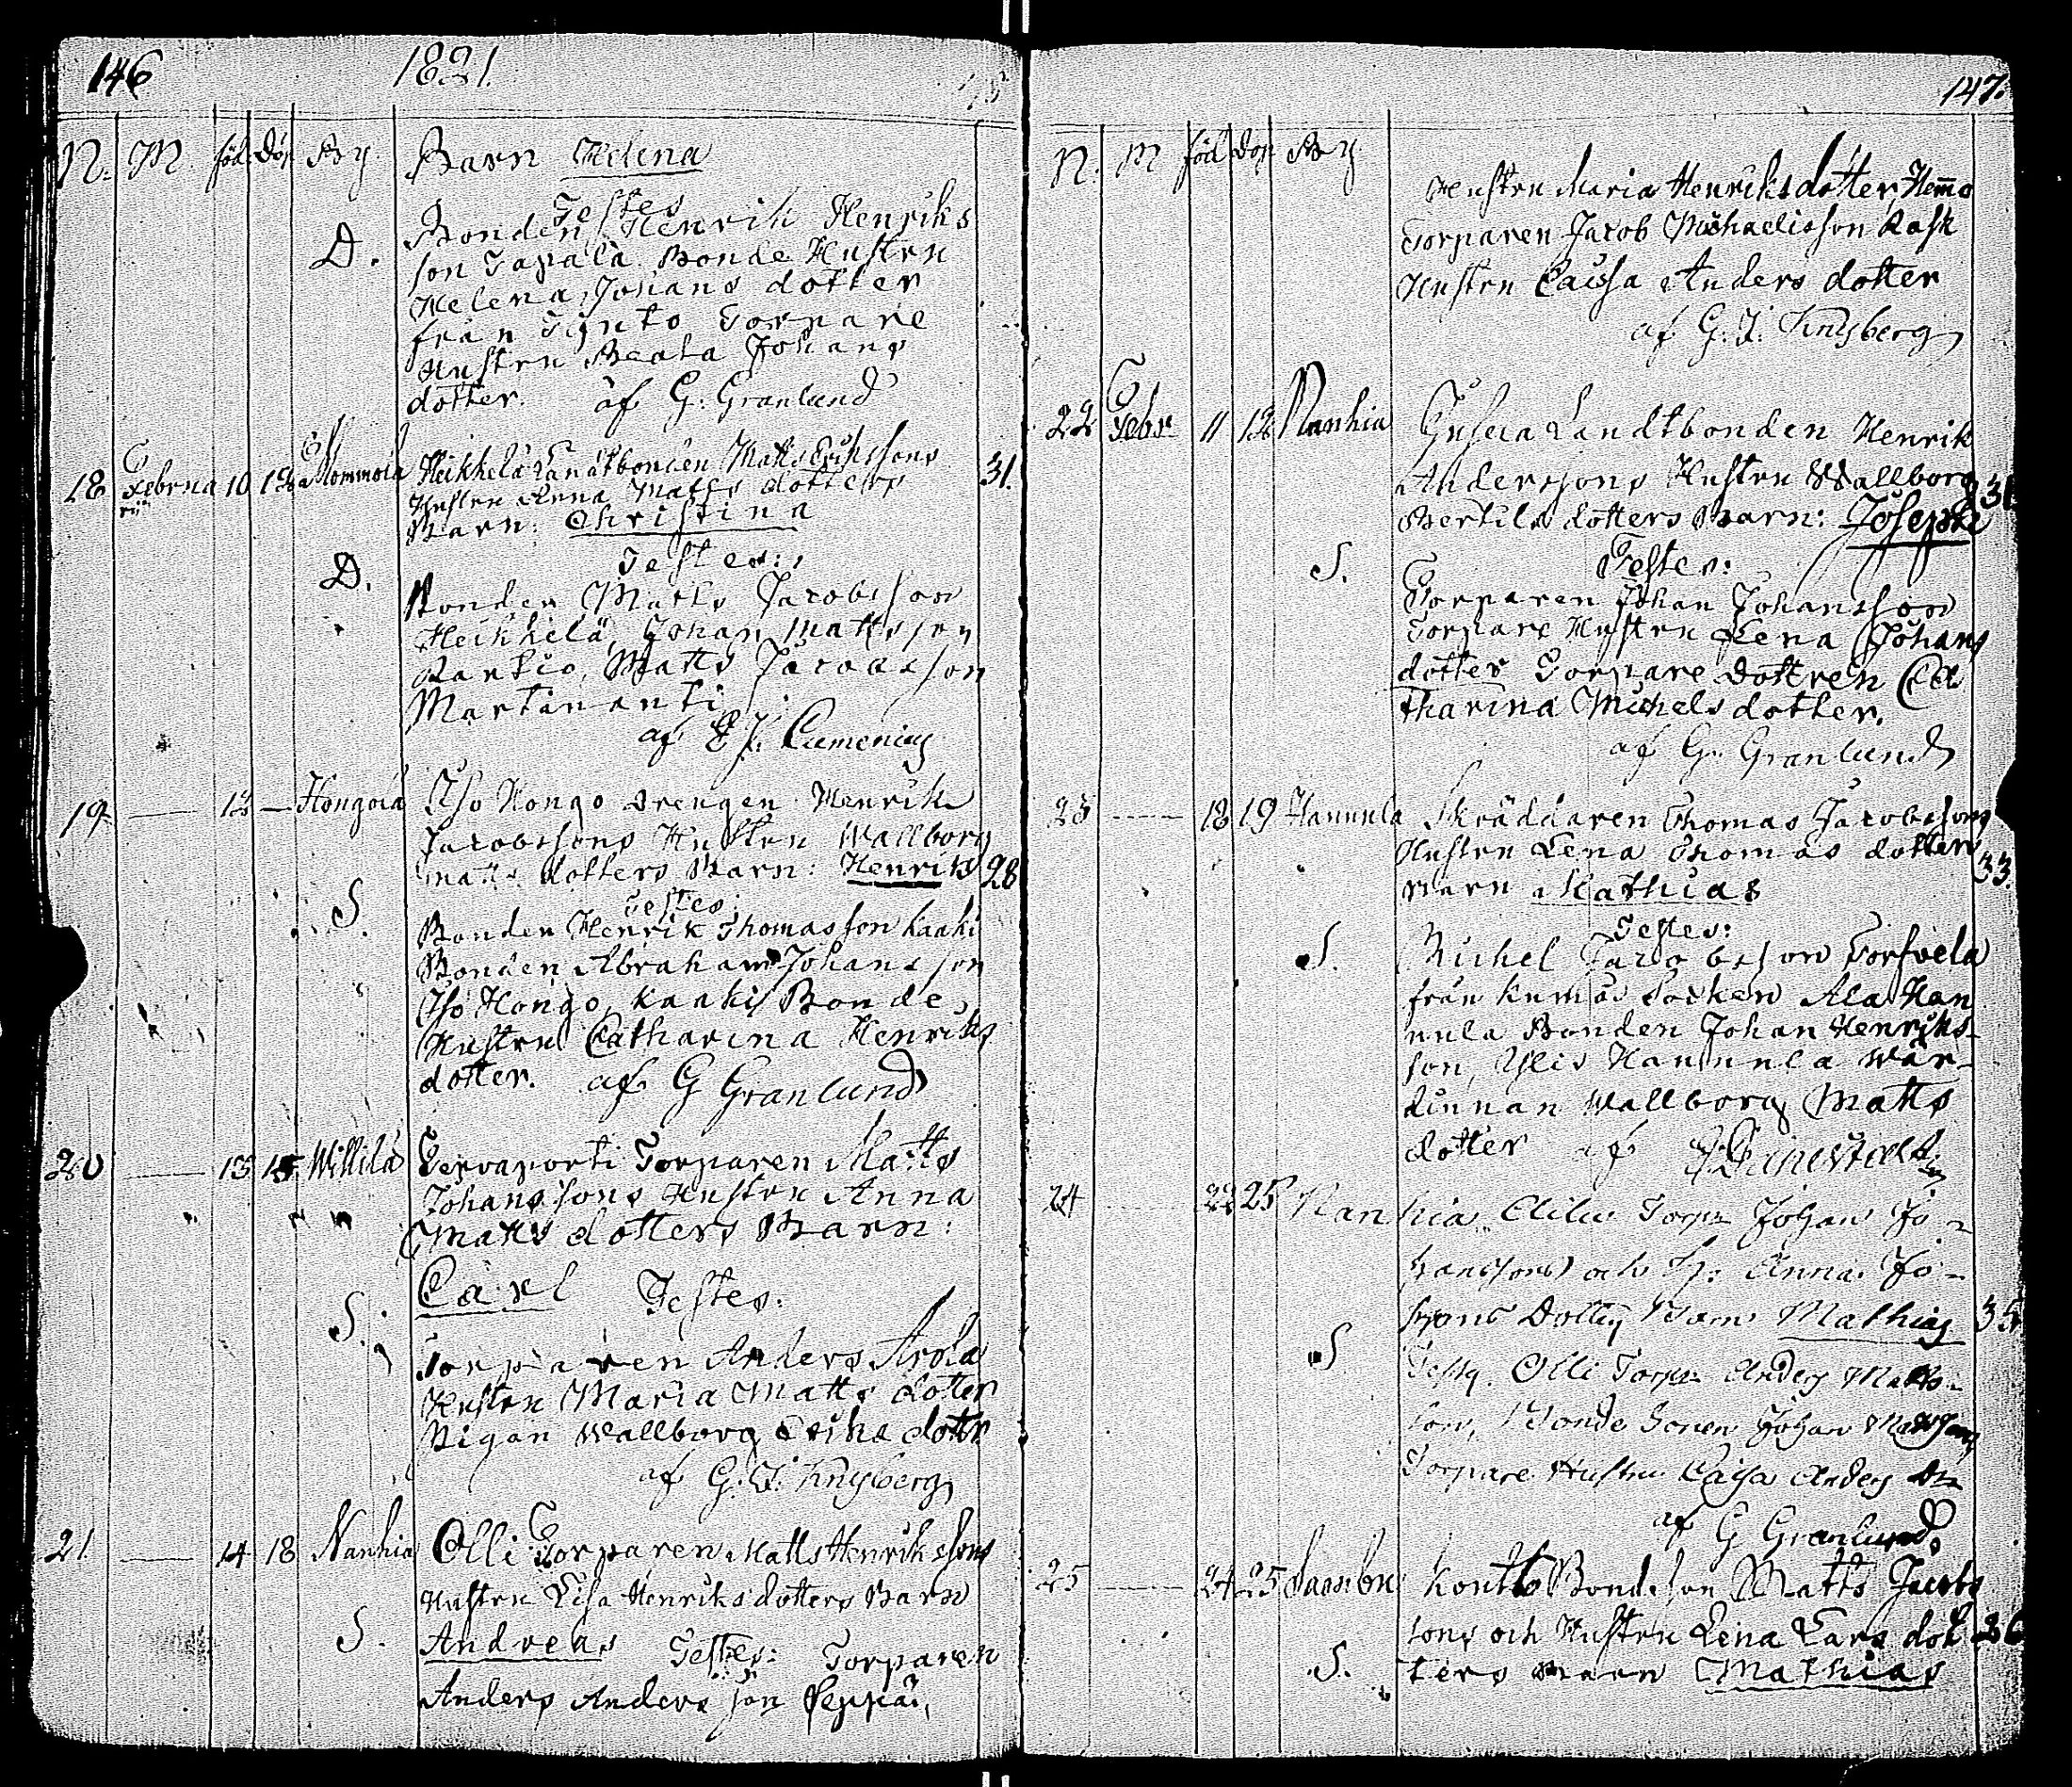 146 1821.
N. M. föd. Döp. By. Barn Helena
Testes
D. Bonden Henrik Henriks
son Tapala Bonde Hustru
Helena Johans dotter
från Torpare
Hustru Beata Johans
dotter. af G: Granlund
18 Februa 10 Mommola Heikkelä Landtbonden Matts Erikssons 31.
rii Hustru Anna Matts dotters
Barn: Christina
Testes:
D. Bonden Matts Jacobsson
Heikkelä, Johan Mattsson
Matts Jacobsson
Martinanti
af Cumenius
19. — 12 — Hongola Iso Hongo Drengen Henrik
Jacobssons Hustru Wallborg
Matts dotters Barn: Henrik 28
Testes:
S. Bonden Henrik Thomasson Kaaki
Bonden Abraham Johansson
Iso Hongo, Kaaki Bonde
Hustru Catharina Henriks
dotter. af G Granlund
20 — 13 15 Willilä Torparen Matts
Johanssons Hustru Anna
Matts dotters Barn:
Carl Testes:
S. Torparen Anders Arola
Hustru Maria Matts dotter
Pigan Wallborg Eriks dottr
af G. J. Knysberg
21. — 14 18 Nanhia Olli Torparen Matts Henrikssons
Hustru Lisa Henriksdotters Barn
S. Andreas Testes: Torparen
Anders Andersson Seppä,
147.
N. M föd Döp By.
Hustru Maria Henriksdotter, Hemmo
Torparen Jacob Michaelisson Rask
Hustru Caisa Anders dotter
af G. J. Knysberg
22 Febr 11 18 Nanhia Juseia Landtbonden Henrik
Anderssons Hustru Wallborg 31
Bertils dotters Barn: Joseph
Testes:
S. Torparen Johan Johansson
Torpare Hustru Lena Johans
dotter Torpare Dottren Ca
tharina Michels dotter.
af G. Granlund
23 — 18 19 Hannula Skräddaren Thomas Jacobssons
Hustru Lena Thomas dotters 33.
Barn Mathias
Testes:
S. Michel Jacobsson Torfvela
från Kumo Socken Ala Han
nula Bonden Johan Henriks-
son, Ylis Hannula Wär-
dinnan Wallborg Matts
dotter af
24 — 22 25 Nanhia Torp: Johan Jo-
hanssons och H: Anna Jo-
hans Dotters Barn Mathias 35
S Testes. Olli Torp: Anders Matts-
son, Bonde Sonen Johan Mattsson
Torpare Hustru Caisa Anders Dr
af G Granlund.
25 — 24 25 Sambu Kontto Bondeson Matts Jacobs
sons och Hustru Lena Lars dot 26
S. ters Barn Mathias